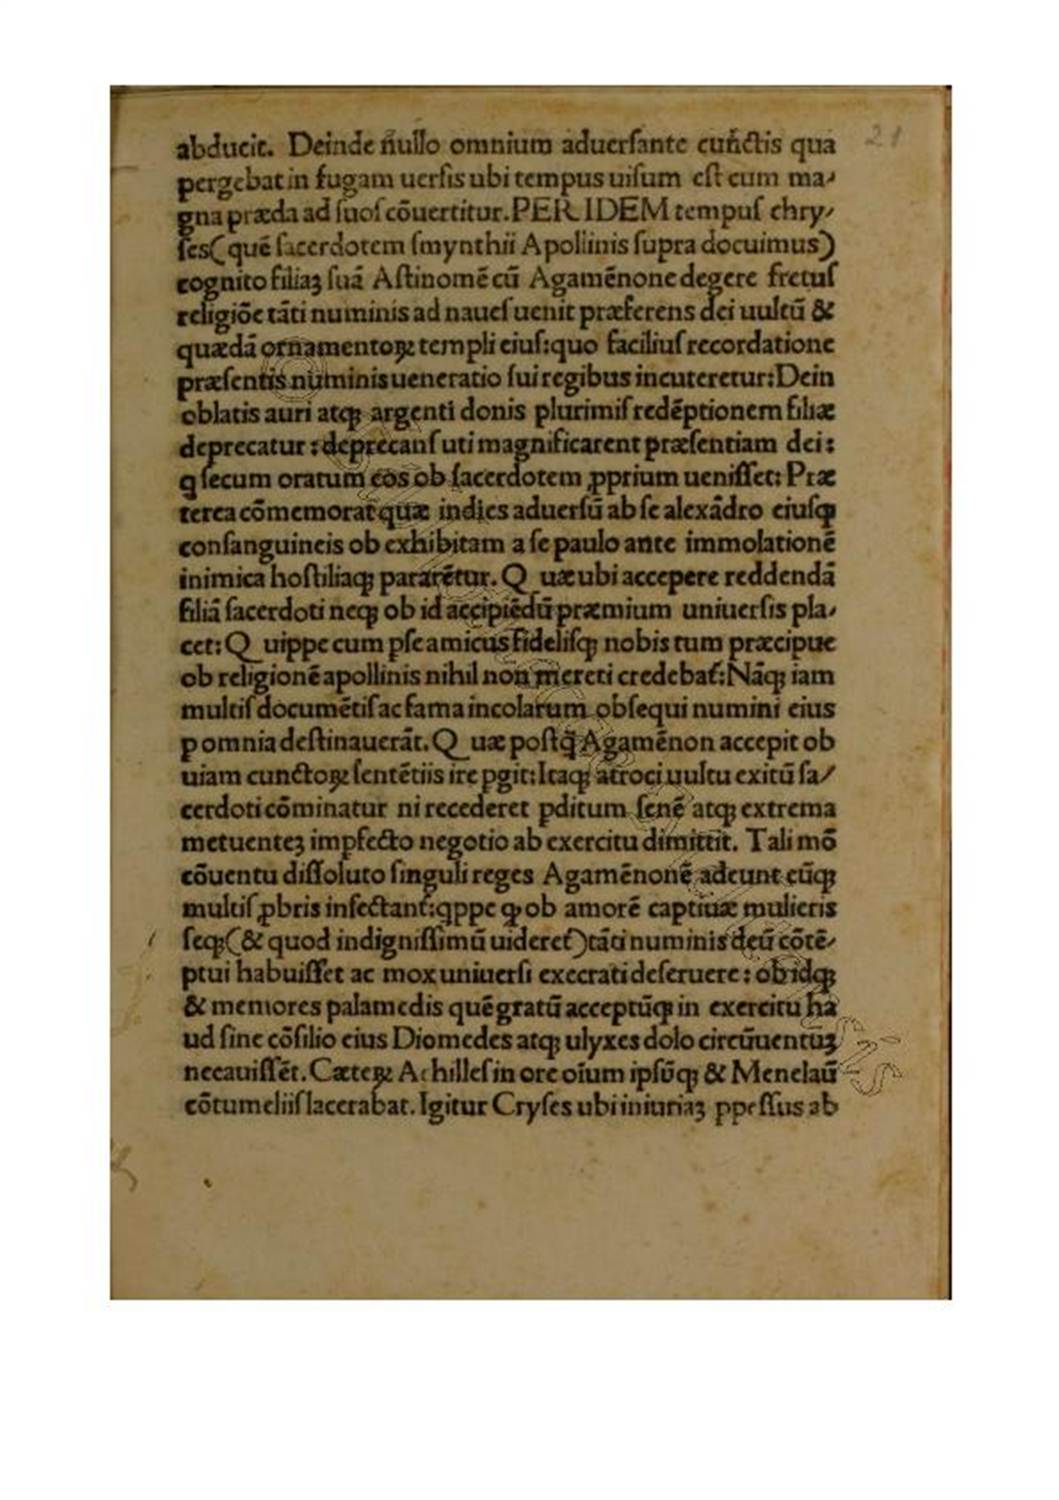 21
abducit. Deinde ñullo omnium aduerſante cuñctis qua
pergebat in fugam uerſis ubi tempus uiſum eſt cum ma-
gna præda ad ſuoſ cōuertitur. PER IDEM tempuſ chry-
ſes (quē ſacerdotem ſmynthii Apollinis ſupra docuimus)
cognito filiaꝫ ſuā Aſtinomē cū Agamēnone degere fretuſ
religiōe tāti numinis ad naueſ uenit præferens dei uultū &
quædā ornamentoꝝ templi eiuſ: quo faciliuſ recordatione
præſentis numinis ueneratio ſui regibus incuteretur: Dein
oblatis auri atqꝫ argenti donis plurimiſ redēptionem filiæ
deprecatur: deprecanſ uti magnificarent præſentiam dei:
q ſecum oratum eos ob ſacerdotem ꝓprium ueniſſet: Præ
terea cōmemorat quæ indies aduerſū ab ſe alexādro eiuſqꝫ
conſanguineis ob exhibitam a ſe paulo ante immolationē
inimica hoſtiliaqꝫ pararētur. Q uæ ubi accepere reddendā
filiā ſacerdoti neqꝫ ob id accipiēdū præmium uniuerſis pla-
cet: Q uippe cum pſe amicus fideliſqꝫ nobis tum præcipue
ob religionē apollinis nihil non mereri credebat̃: Nāqꝫ iam
multiſ documētiſ ac fama incolarum obſequi numini eius
p omnia deſtinauerāt. Q uæ poſtq̃ Agamēnon accepit ob
uiam cunctoꝝ ſentētiis ire pgit: Itaqꝫ atroci uultu exitū ſa-
cerdoti cōminatur ni recederet pditum ſenē atqꝫ extrema
metuenteꝫ impfecto negotio ab exercitu dimittit. Tali mō
cōuentu diſſoluto ſinguli reges Agamēnonē adeunt eūqꝫ
multiſ ꝓbris inſectant̃: qppe ꝙ ob amorē captiuæ mulieris
ſeqꝫ (& quod indigniſſimū uideret̃) tāti numinis deū cōtē-
ptui habuiſſet ac mox uniuerſi execrati deſeruere: ob idqꝫ
& memores palamedis quē gratū acceptūqꝫ in exercitu ha
ud ſine cōſilio eius Diomedes atqꝫ ulyxes dolo circūuentūꝫ
necauiſſēt. Cæteꝝ Achilleſ in ore oīum ipſūqꝫ & Menelaū
cōtumeliiſ lacerabat. Igitur Cryſes ubi iniuriaꝫ ppeſſus ab